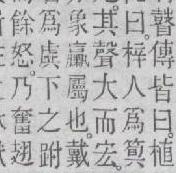 瞽傳皆曰植
曰梓人爲簨
其聲大而宏
象羸屬也。戴
爲虡下之跗
餘怒。乃奮翅